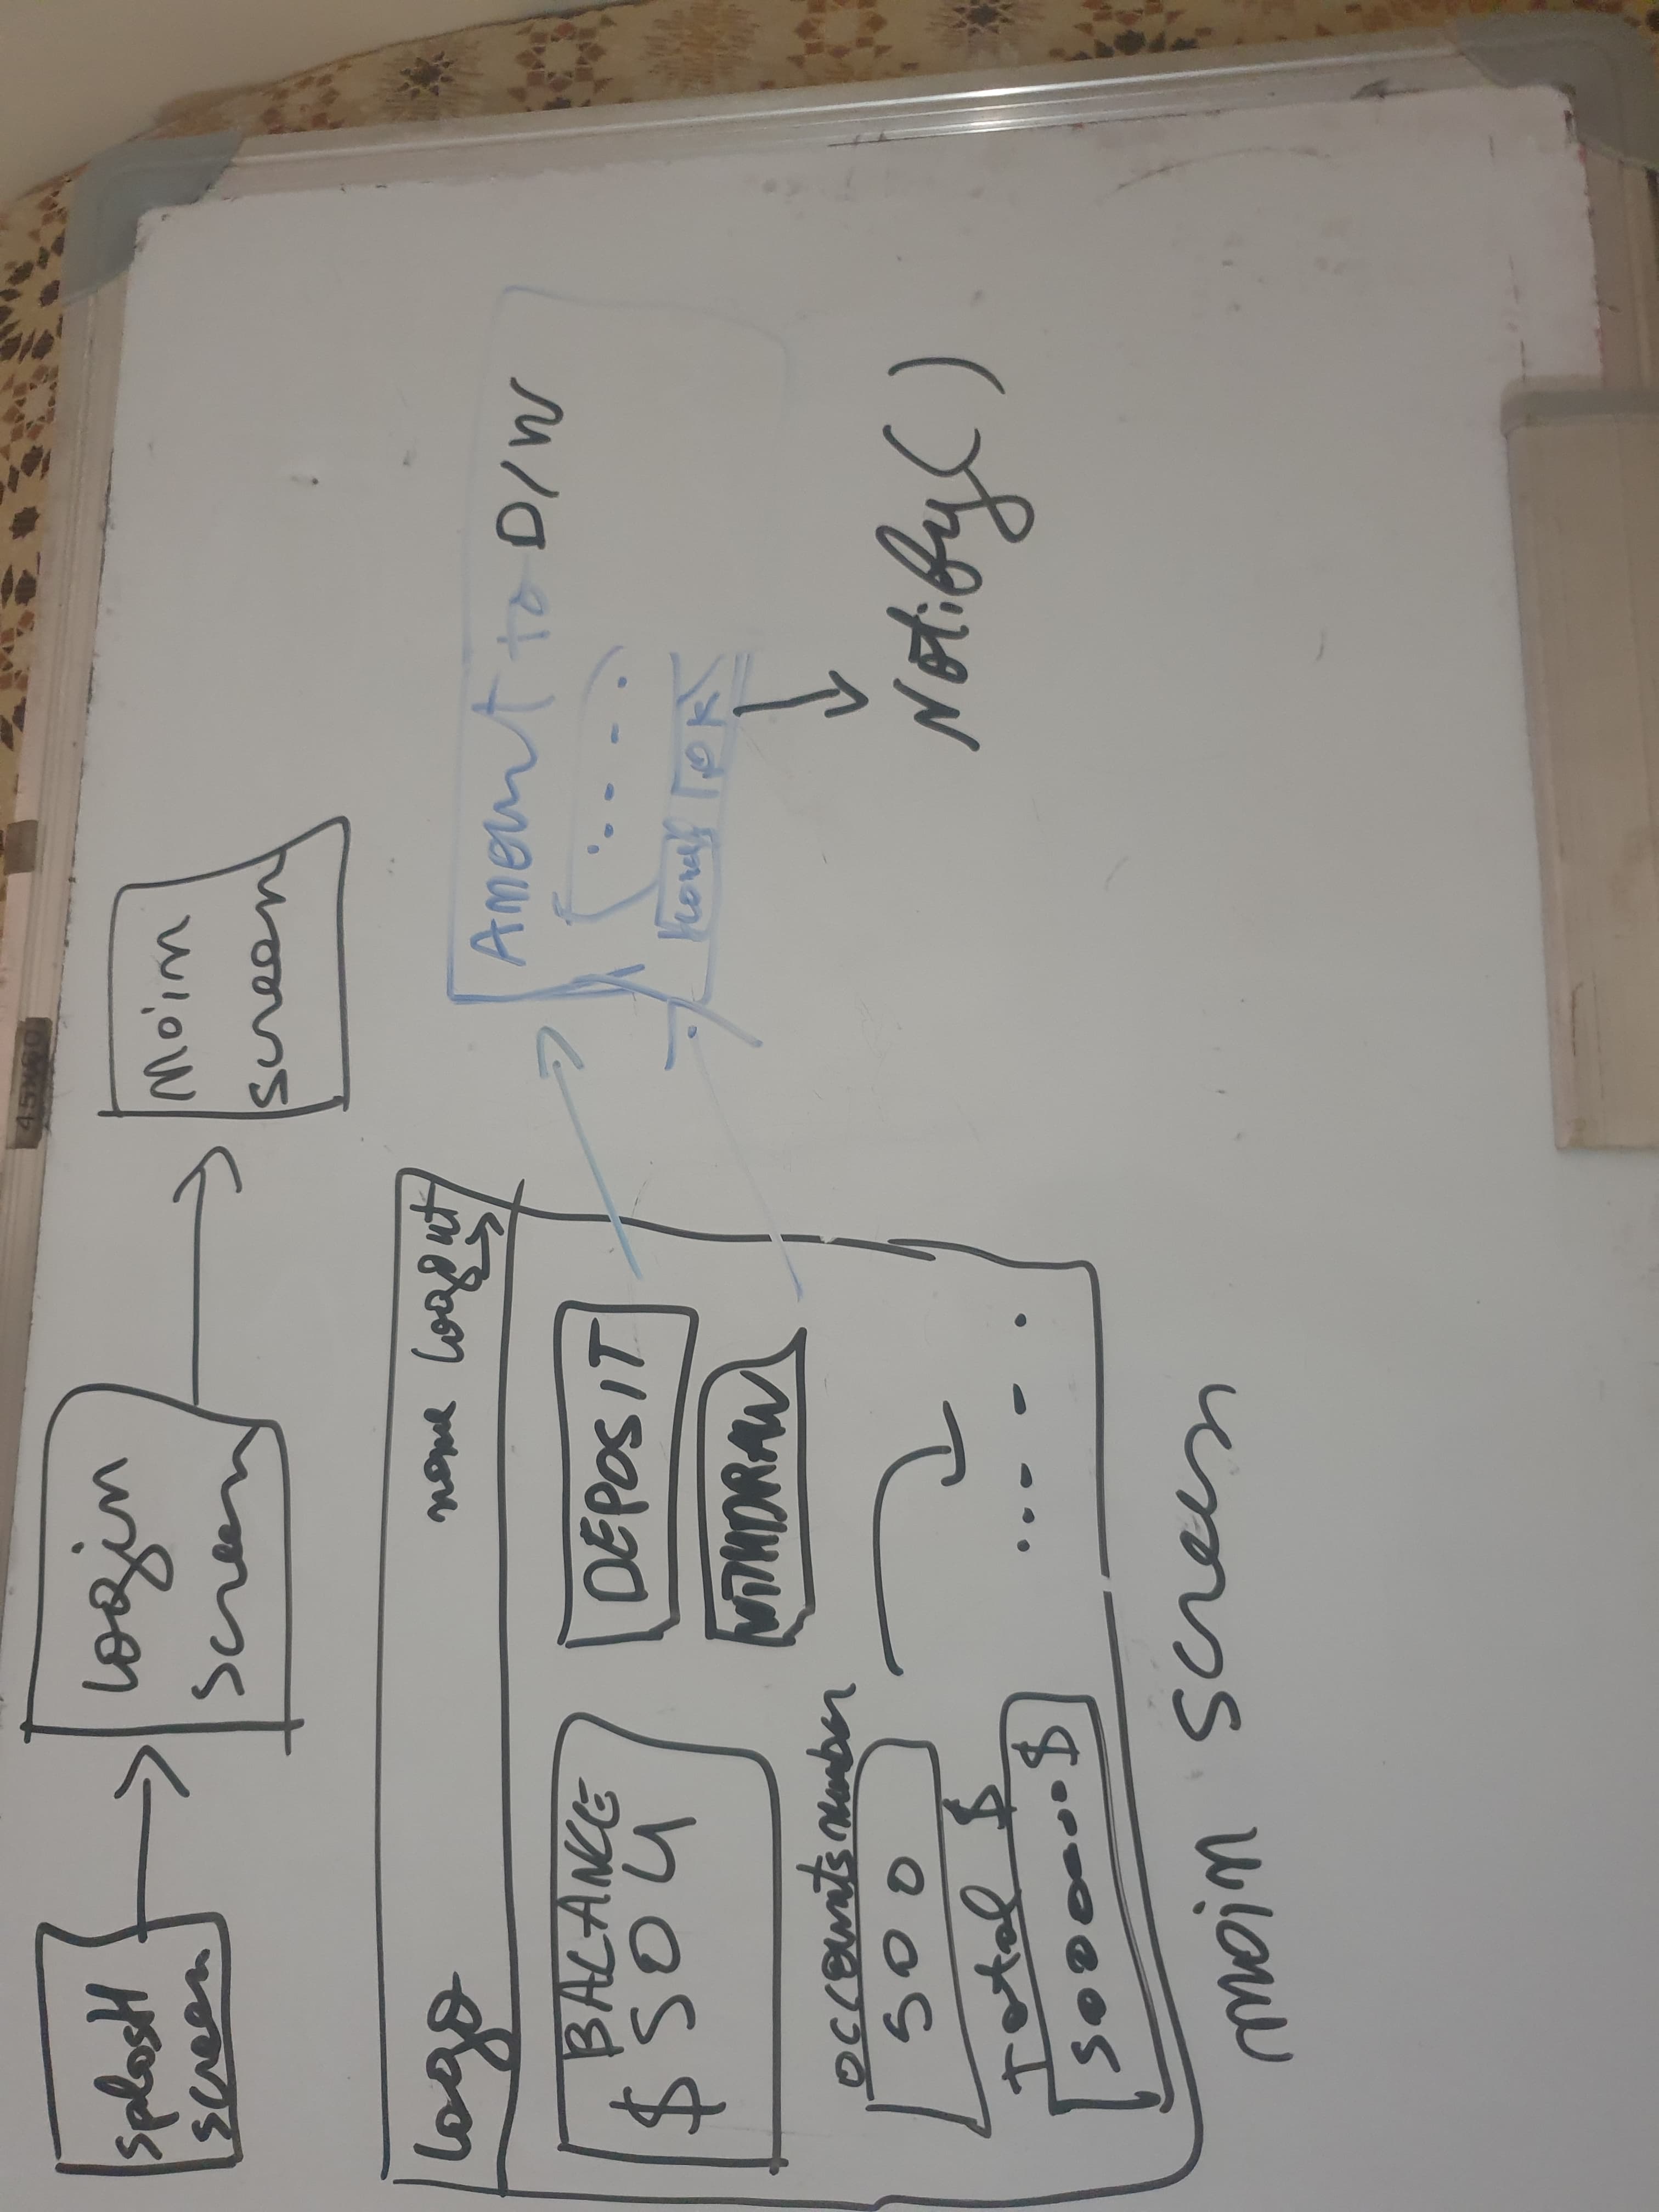 splasH
screen
Login
screen
Main
screen
Logo
name Logout
BALANCE
$ 504
DEPOSIT
WITHDRAW
accounts number
500
Total $
5000
$
Main Screen
Amount to D/W
OK
Notify()
45x60